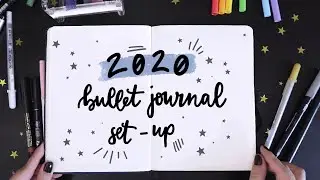 2020
bullet journal
set-up